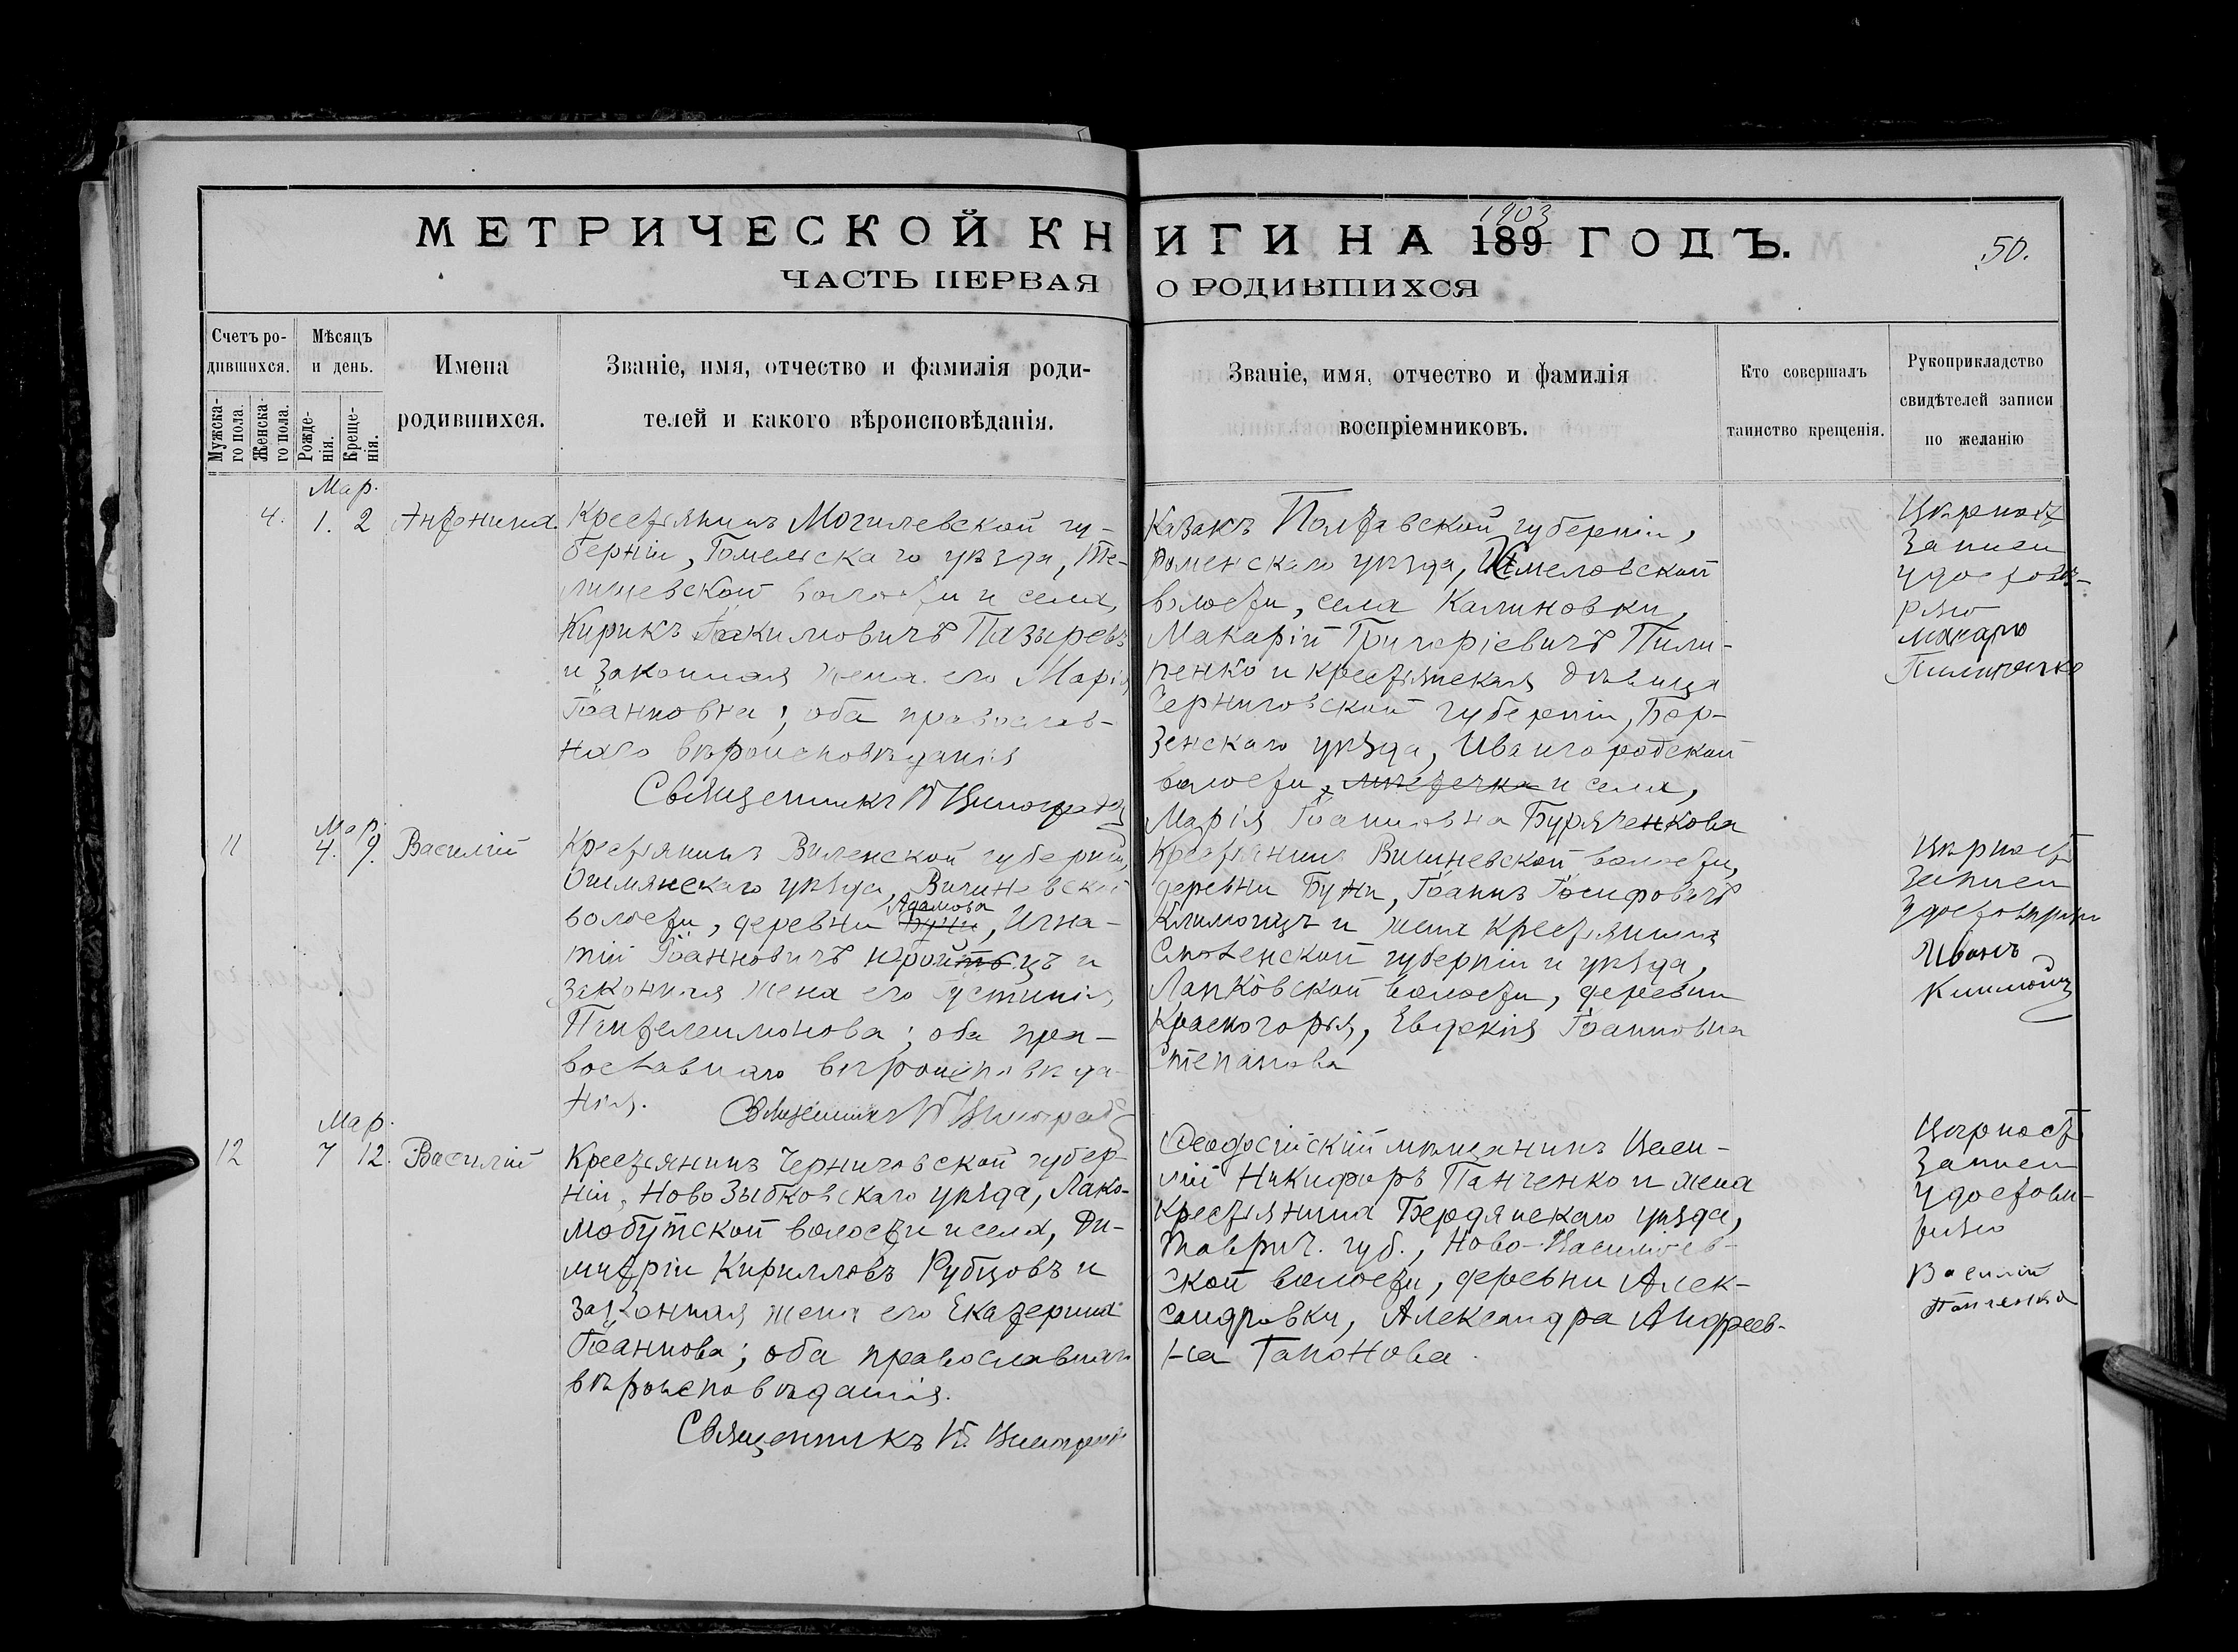 МЕТРИЧЕСКОЙ КНИГИ НА 189 1903 ГОДЪ.
50.
ЧАСТЬ ПЕРВАЯ О РОДИВШИХСЯ
Счетъ ро-
дившихся.
Мужска-
го пола.
Женска-
го пола.
Мѣсяцъ
и день.
Рожде-
нія.
Креще-
нія.
Имена
родившихся.
Званіе, имя, отчество и фамилія роди-
телей и какого вѣроисповѣданія.
Званіе, имя, отчество и фамилія
воспріемниковъ.
Кто совершалъ
таинство крещенія.
Рукоприкладство
свидѣтелей записи
по желанію
Мар.
4. 1. 2 Антонина.
Крестьянинъ Могилевской гу-
берніи, Гомельскаго уѣзда,
волости и села,
Кирикъ Іоакимовичъ Пазыревъ
и законная жена его Марія
Іоанновна; оба православ-
наго вѣроисповѣданія
Священникъ
Казакъ Полтавской губерніи,
Роменскаго уѣзда, Хмеловской
волости, села Калиновки,
Макарій Григоріевичъ Пили-
пенко и крестьянская дѣвица
Черниговской губерніи, Бор-
зенскаго уѣзда, Ивангородской
волости, мѣстечка и села,
Марія Іоанновна Буряченкова
Вѣрность
записи
удостовѣ-
ряю
Макарій
Пилипенко
Мар.
11 4. 9. Василій
Крестьянинъ Виленской губерніи,
Ошмянскаго уѣзда, Вишневской
Адамова
волости, деревни Буни, Игна-
тій Іоанновичъ Юройть цъ и
законная жена его Устинія
Пантелеимонова; оба пра-
вославнаго вѣроисповѣда-
нія. Священникъ
Крестьянинъ Вишневской волости,
деревни Буни, Іоаннъ Іосифовичъ
Климовичъ и жена крестьянина
Смоленской губерніи и уѣзда,
Лапковской волости, деревни
Красногорья, Евдокія Іоанновна
Степанова
Вѣрность
записи
удостовѣряю
Иванъ
Климовичъ
Мар.
12 7 12. Василій
Крестьянинъ Черниговской губер-
ніи, Ново Зыбковскаго уѣзда, Лако-
мобутской волости и села, Ди-
митрій Кирилловъ Рубцовъ и
законная жена его Екатерина
Іоаннова; оба православнаго
вѣроисповѣданія.
Священникъ
Ѳеодосійскій мѣщанинъ Васи-
лій Никифоръ Панченко и жена
крестьянина Бердянскаго уѣзда,
Таврич. губ., Ново-Васильев-
ской волости, деревни Алек-
сандровки, Александра Андреев-
на Гапонова.
Вѣрность
записи
удостовѣ-
ряю
Василій
Панченко